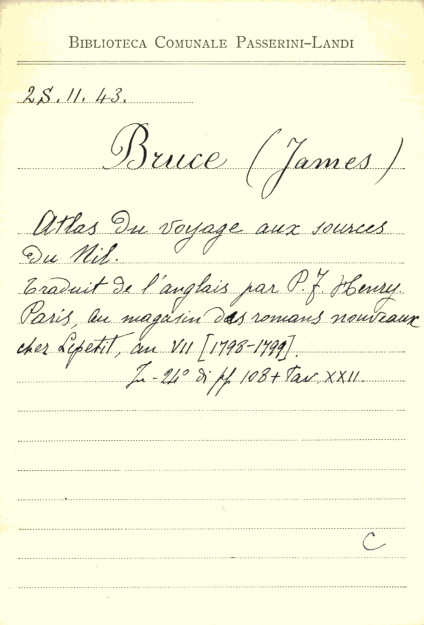 BIBLIOTECA COMUNALE PASSERINI-LANDI
2S.11.43.
Bruce (James)
Atlas du voyage aux sources
du Nil.
Traduit de l'anglais par P. F. Henry
Paris, au magasin des romans nouveaux
chez Lepetit, an VII [1798-1799].
In-24° di pp 108 + tav. XXII.
C